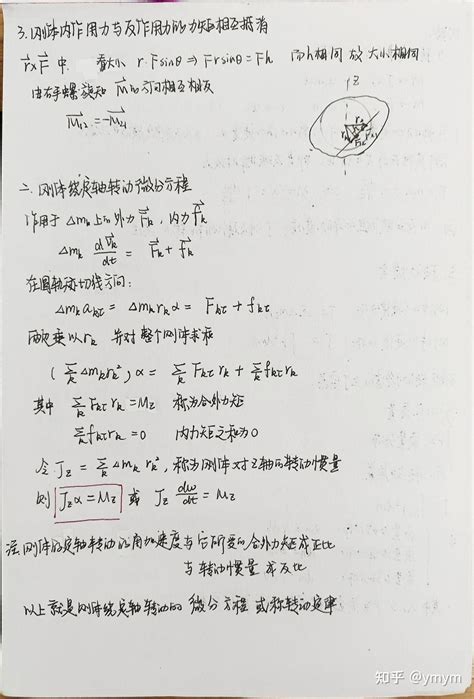 3. 刚体内作用力与反作用力的力矩相互抵消
r⃗×F⃗ 中 看大小 r·Fsinθ ⇒ Frsinθ = Fh 而h相同 故大小相同
由右手螺旋知 M⃗的方向相互相反
M⃗₁₂ = -M⃗₂₁
Z
二. 刚体绕定轴转动微分方程
作用于 Δmₖ上的外力 F⃗ₖ, 内力 f⃗ₖ
Δmₖ dv⃗ₖ/dt = F⃗ₖ + f⃗ₖ
在圆轨迹切线方向:
Δmₖ aₖτ = Δmₖ rₖ α = Fₖτ + fₖτ
两边乘以 rₖ 并对整个刚体求和
(∑ₖ Δmₖ rₖ²) α = ∑ₖ Fₖτ rₖ + ∑ₖ fₖτ rₖ
其中 ∑ₖ Fₖτ rₖ = M_z 称为合外力矩
∑ₖ fₖτ rₖ = 0 内力矩之和为0
令 J_z = ∑ₖ Δmₖ rₖ², 称为刚体对z轴的转动惯量
则 J_z α = M_z 或 J_z dω/dt = M_z
注: 刚体的定轴转动的角加速度与它所受的合外力矩成正比
与转动惯量成反比
以上就是刚体绕定轴转动的 微分方程 或称转动定律
知乎 @ymym